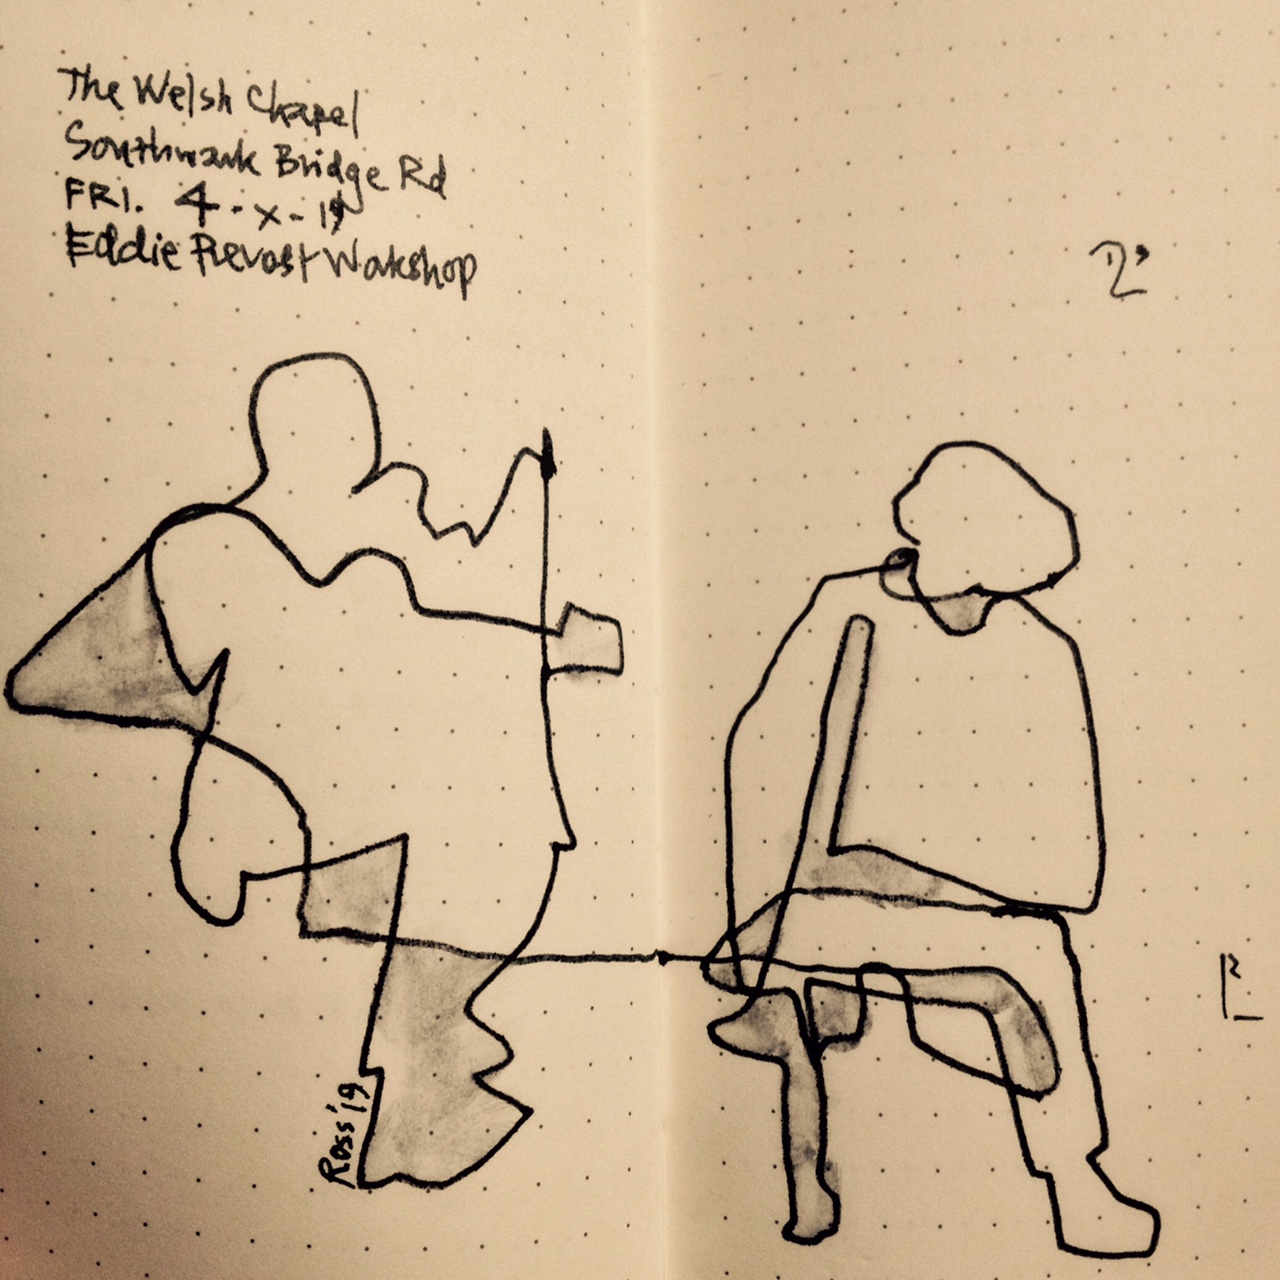 The Welsh Chapel
Southwark Bridge Rd
FRI. 4-x-19
Eddie Prevost Workshop
Ross '19